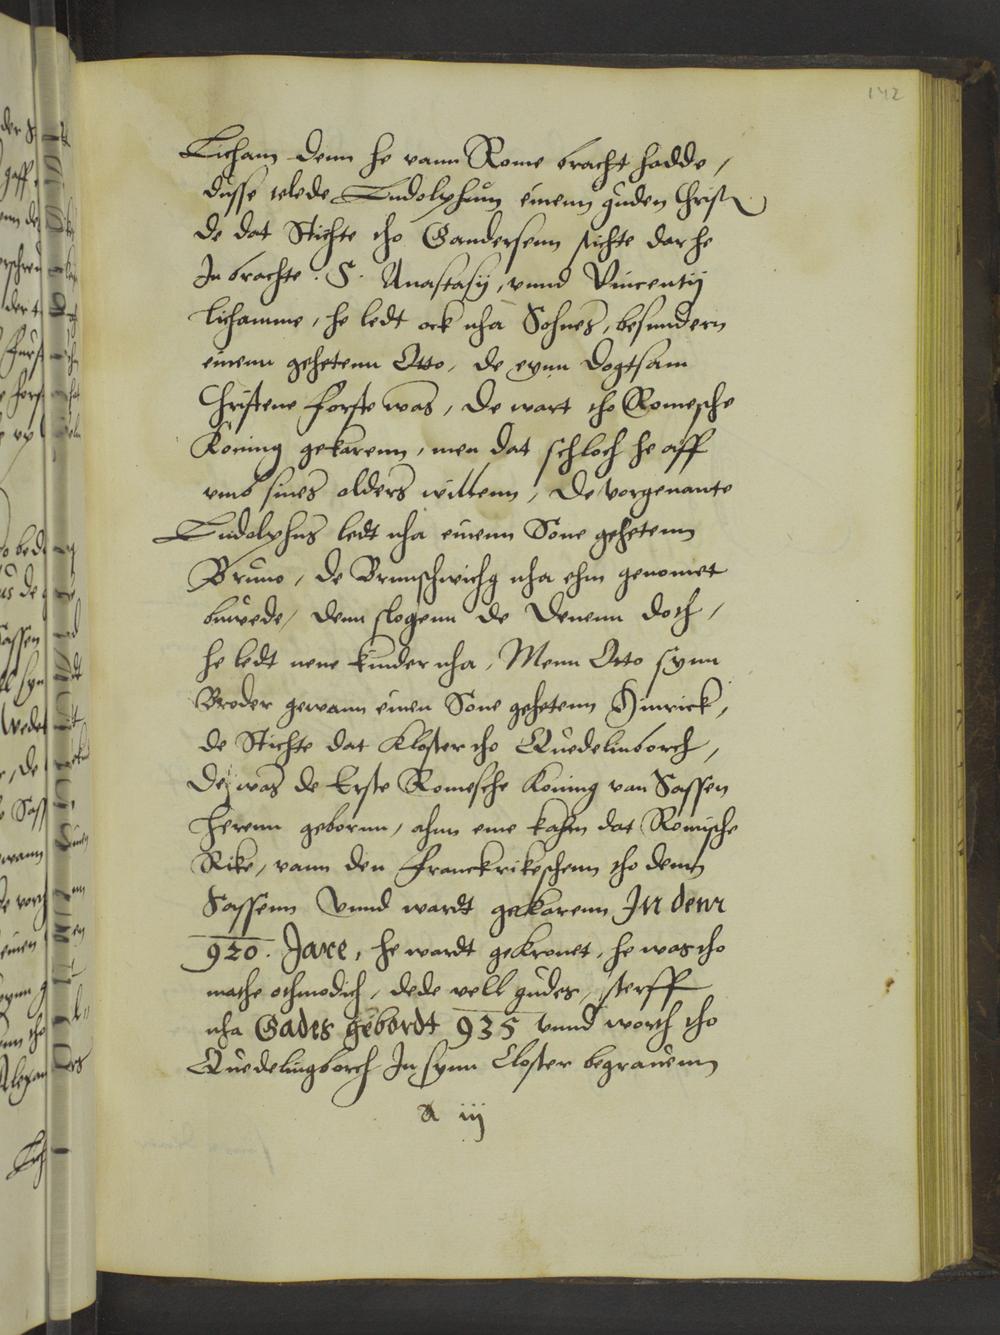 142
Licham denn he vann Rome bracht hadde,
dusse telede Ludolphum einenn guden Christ
de dat Stichte tho Gandersenn stichte dar he
In brachte. S. Anastasij, vnnd Vincentij
lichamme, he ledt ock nha Sohnes, besundern
einenn gehetenn Otto, de eynn dogtsam
Christene forste was, de wart tho Romesche
Koning gekarenn, men dat schloch he aff
vmb sines olders willenn, de vorgenante
Ludolphus ledt nha einenn Sone gehetenn
Bruno, de Brunschwichg nha ehm genomet
buwede, denn slogenn de Denenn doth,
he ledt nene kinder nha, Menn Otto synn
Broder gewann einen Sone gehetenn Hinrick,
de Stichte dat Kloster tho Quedelinborch,
De was de Erste Romesche Koning van Sassen
herenn gebornn, ahnn eme kahm dat Romische
Rike, vann den Franckrikeschenn tho denn
Sassenn Vnnd wardt gekarenn In denn
920. Jare, he wardt gekronet, he was tho
mathe othmodich, dede vell gudes, sterff
nha Gades gebordt 935 vnnd worth tho
Quedelingborch In synn Closter begrauenn
a iij